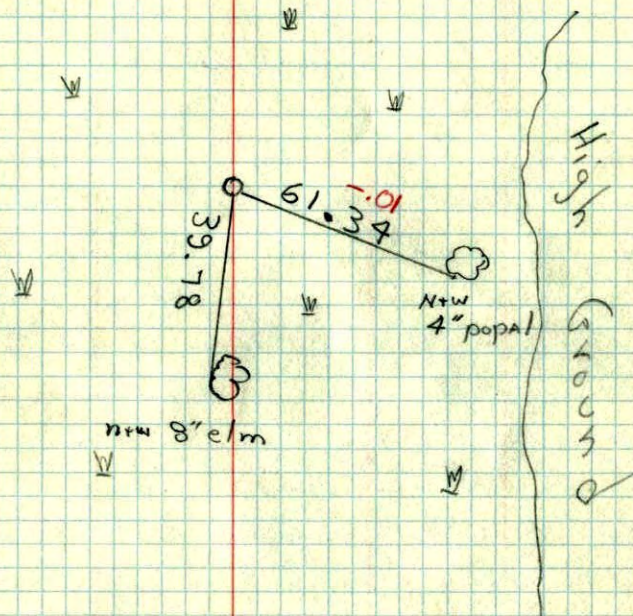 -.01
61.34
39.78
N+W
4" popal
n+w 8" elm
High Ground